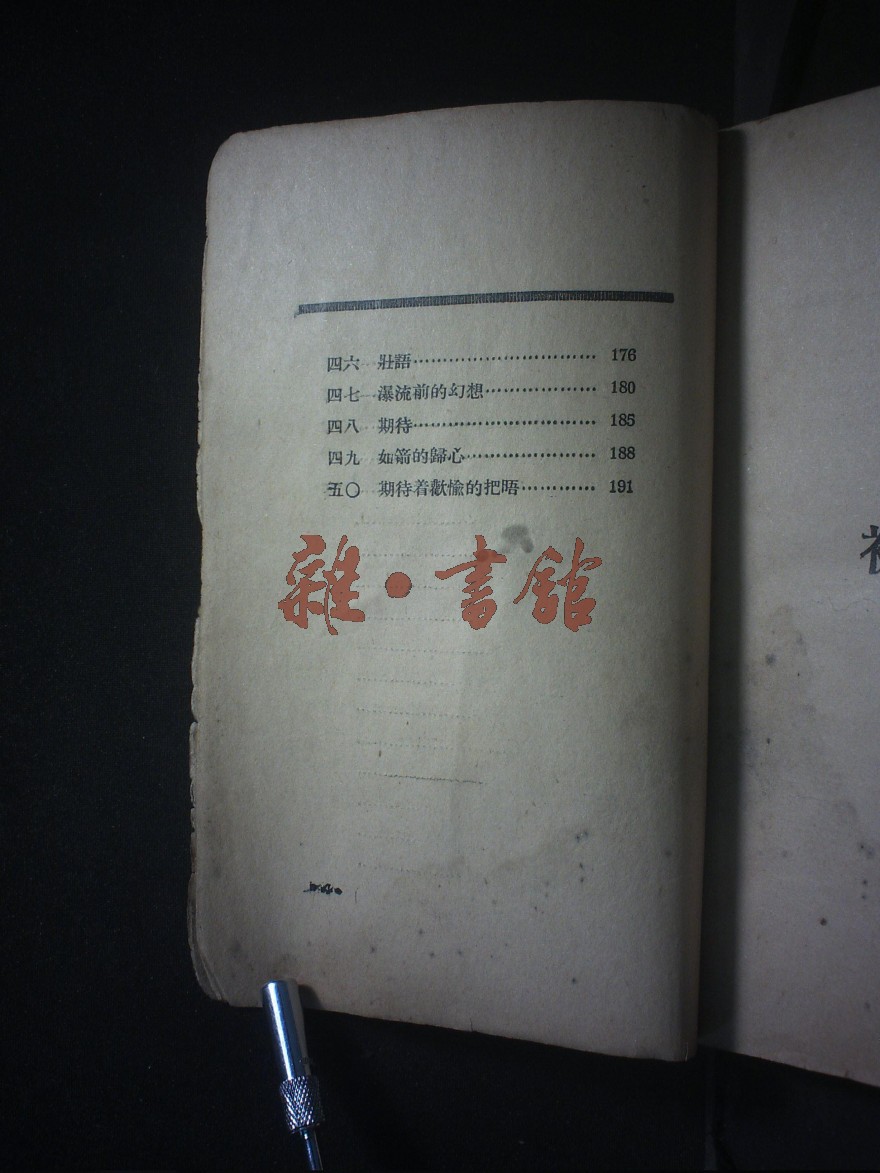 四六 壯語…………………………… 176
四七 瀑流前的幻想………………… 180
四八 期待…………………………… 185
四九 如箭的歸心…………………… 188
五〇 期待着歡愉的把晤…………… 191
雜·書館